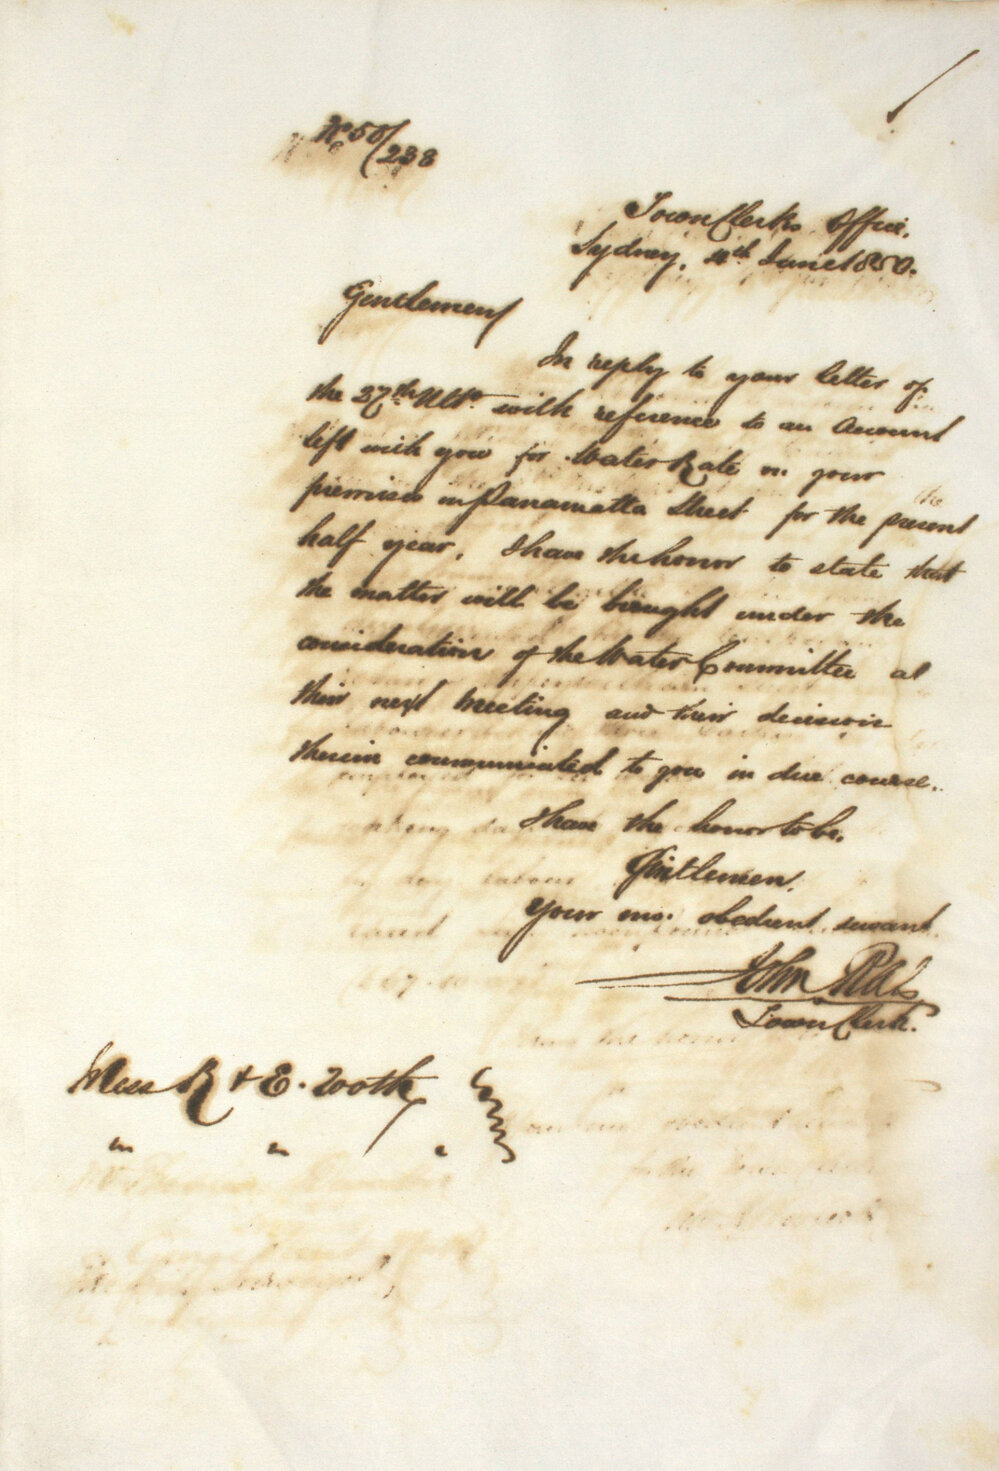 No 50/238
Town Clerks Office.
Sydney, 4th June 1850.
Gentlemen
In reply to your letter of
the 27th Ulto. with reference to an Account
left with you for Water Rate on your
premises in Parramatta Street for the present
half year, I have the honor to state that
the matter will be brought under the
consideration of the Water Committee at
their next Meeting and their decision
therein communicated to you in due course.
I have the honor to be,
Gentlemen,
Your mo. obedient servant
John Rae
Town Clerk.
Mess R & E. Tooth
" " "